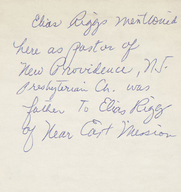 Elias Riggs mentioned
here as pastor of
New Providence, N.J.
Presbyterian Ch. was
father to Elias Riggs
of Near East Mission